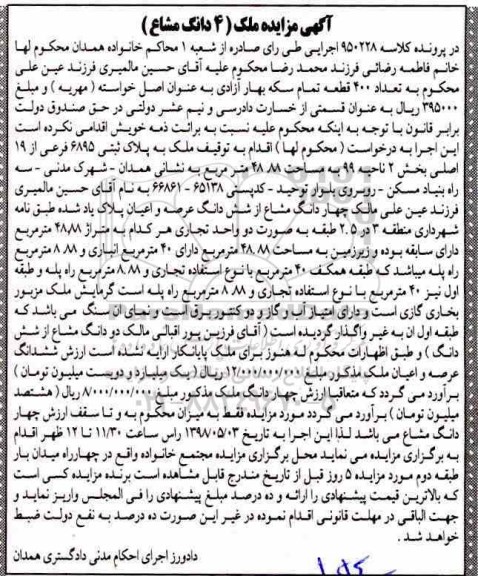 آگهی مزایده ملک (۴ دانگ مشاع)
در پرونده کلاسه ۹۵۰۲۲۸ اجرایی طی رای صادره از شعبه ۱ محاکم خانواده همدان محکوم لها
خانم فاطمه رضائی فرزند محمد رضا محکوم علیه آقای حسین مالمیری فرزند عین علی
محکوم به تعداد ۴۰۰ قطعه تمام سکه بهار آزادی به عنوان اصل خواسته (مهریه) و مبلغ
۳۹۵۰۰۰ ریال به عنوان قسمتی از خسارت دادرسی و نیم عشر دولتی در حق صندوق دولت
برابر قانون با توجه به اینکه محکوم علیه نسبت به برائت ذمه خویش اقدامی نکرده است
این اجرا به درخواست (محکوم لها) اقدام به توقیف ملک به پلاک ثبتی ۶۸۹۵ فرعی از ۱۹
اصلی بخش ۲ ناحیه ۹۹ به مساحت ۴۸.۸۸ متر مربع به نشانی همدان - شهرک مدنی - سه
راه بنیاد مسکن - روبروی بلوار توحید - کدپستی ۶۵۱۳۸-۶۶۸۶۱ به نام آقای حسین مالمیری
فرزند عین علی ملک چهار دانگ مشاع از شش دانگ عرصه و اعیان پلاک یاد شده طبق نامه
شهرداری منطقه ۳ در ۲.۵ طبقه به صورت دو واحد تجاری هر کدام به متراژ ۴۸.۸۸ مترمربع
دارای سابقه بوده و زیرزمین به مساحت ۴۸.۸۸ مترمربع دارای ۴۰ مترمربع انباری و ۸.۸۸ مترمربع
راه پله میباشد که طبقه همکف ۴۰ مترمربع با نوع استفاده تجاری و ۸.۸۸ مترمربع راه پله و طبقه
اول نیز ۴۰ مترمربع با نوع استفاده تجاری و ۸.۸۸ مترمربع راه پله است گرمایش ملک مزبور
بخاری گازی است و دارای امتیاز آب و گاز و دو کنتور برق است و نمای آن سنگ می باشد که
طبقه اول آن به غیر واگذار گردیده است (آقای فرزین پور اقبالی مالک دو دانگ مشاع از شش
دانگ) و طبق اظهارات محکوم له هنوز برای ملک پایانکار ارایه نشده است ارزش ششدانگ
عرصه و اعیان ملک مذکور مبلغ ۱۲/۰۰۰/۰۰۰/۰۰۰ ریال (یک میلیارد و دویست میلیون تومان)
برآورد می گردد که متعاقبا ارزش چهار دانگ ملک مذکور مبلغ ۸/۰۰۰/۰۰۰/۰۰۰ ریال (هشتصد
میلیون تومان) برآورد می گردد مورد مزایده فقط به میزان محکوم به و تا سقف ارزش چهار
دانگ مشاع می باشد لذا این اجرا به تاریخ ۱۳۹۸/۰۵/۰۳ راس ساعت ۱۱/۳۰ تا ۱۲ ظهر اقدام
به برگزاری مزایده می نماید محل برگزاری مزایده مجتمع خانواده واقع در چهارراه میدان بار
طبقه دوم مورد مزایده ۵ روز قبل از تاریخ مندرج قابل مشاهده است برنده مزایده کسی است
که بالاترین قیمت پیشنهادی را ارائه و ده درصد مبلغ پیشنهادی را فی المجلس واریز نماید و
جهت الباقی در مهلت قانونی اقدام نموده در غیر این صورت ده درصد به نفع دولت ضبط
خواهد شد.
دادورز اجرای احکام مدنی دادگستری همدان